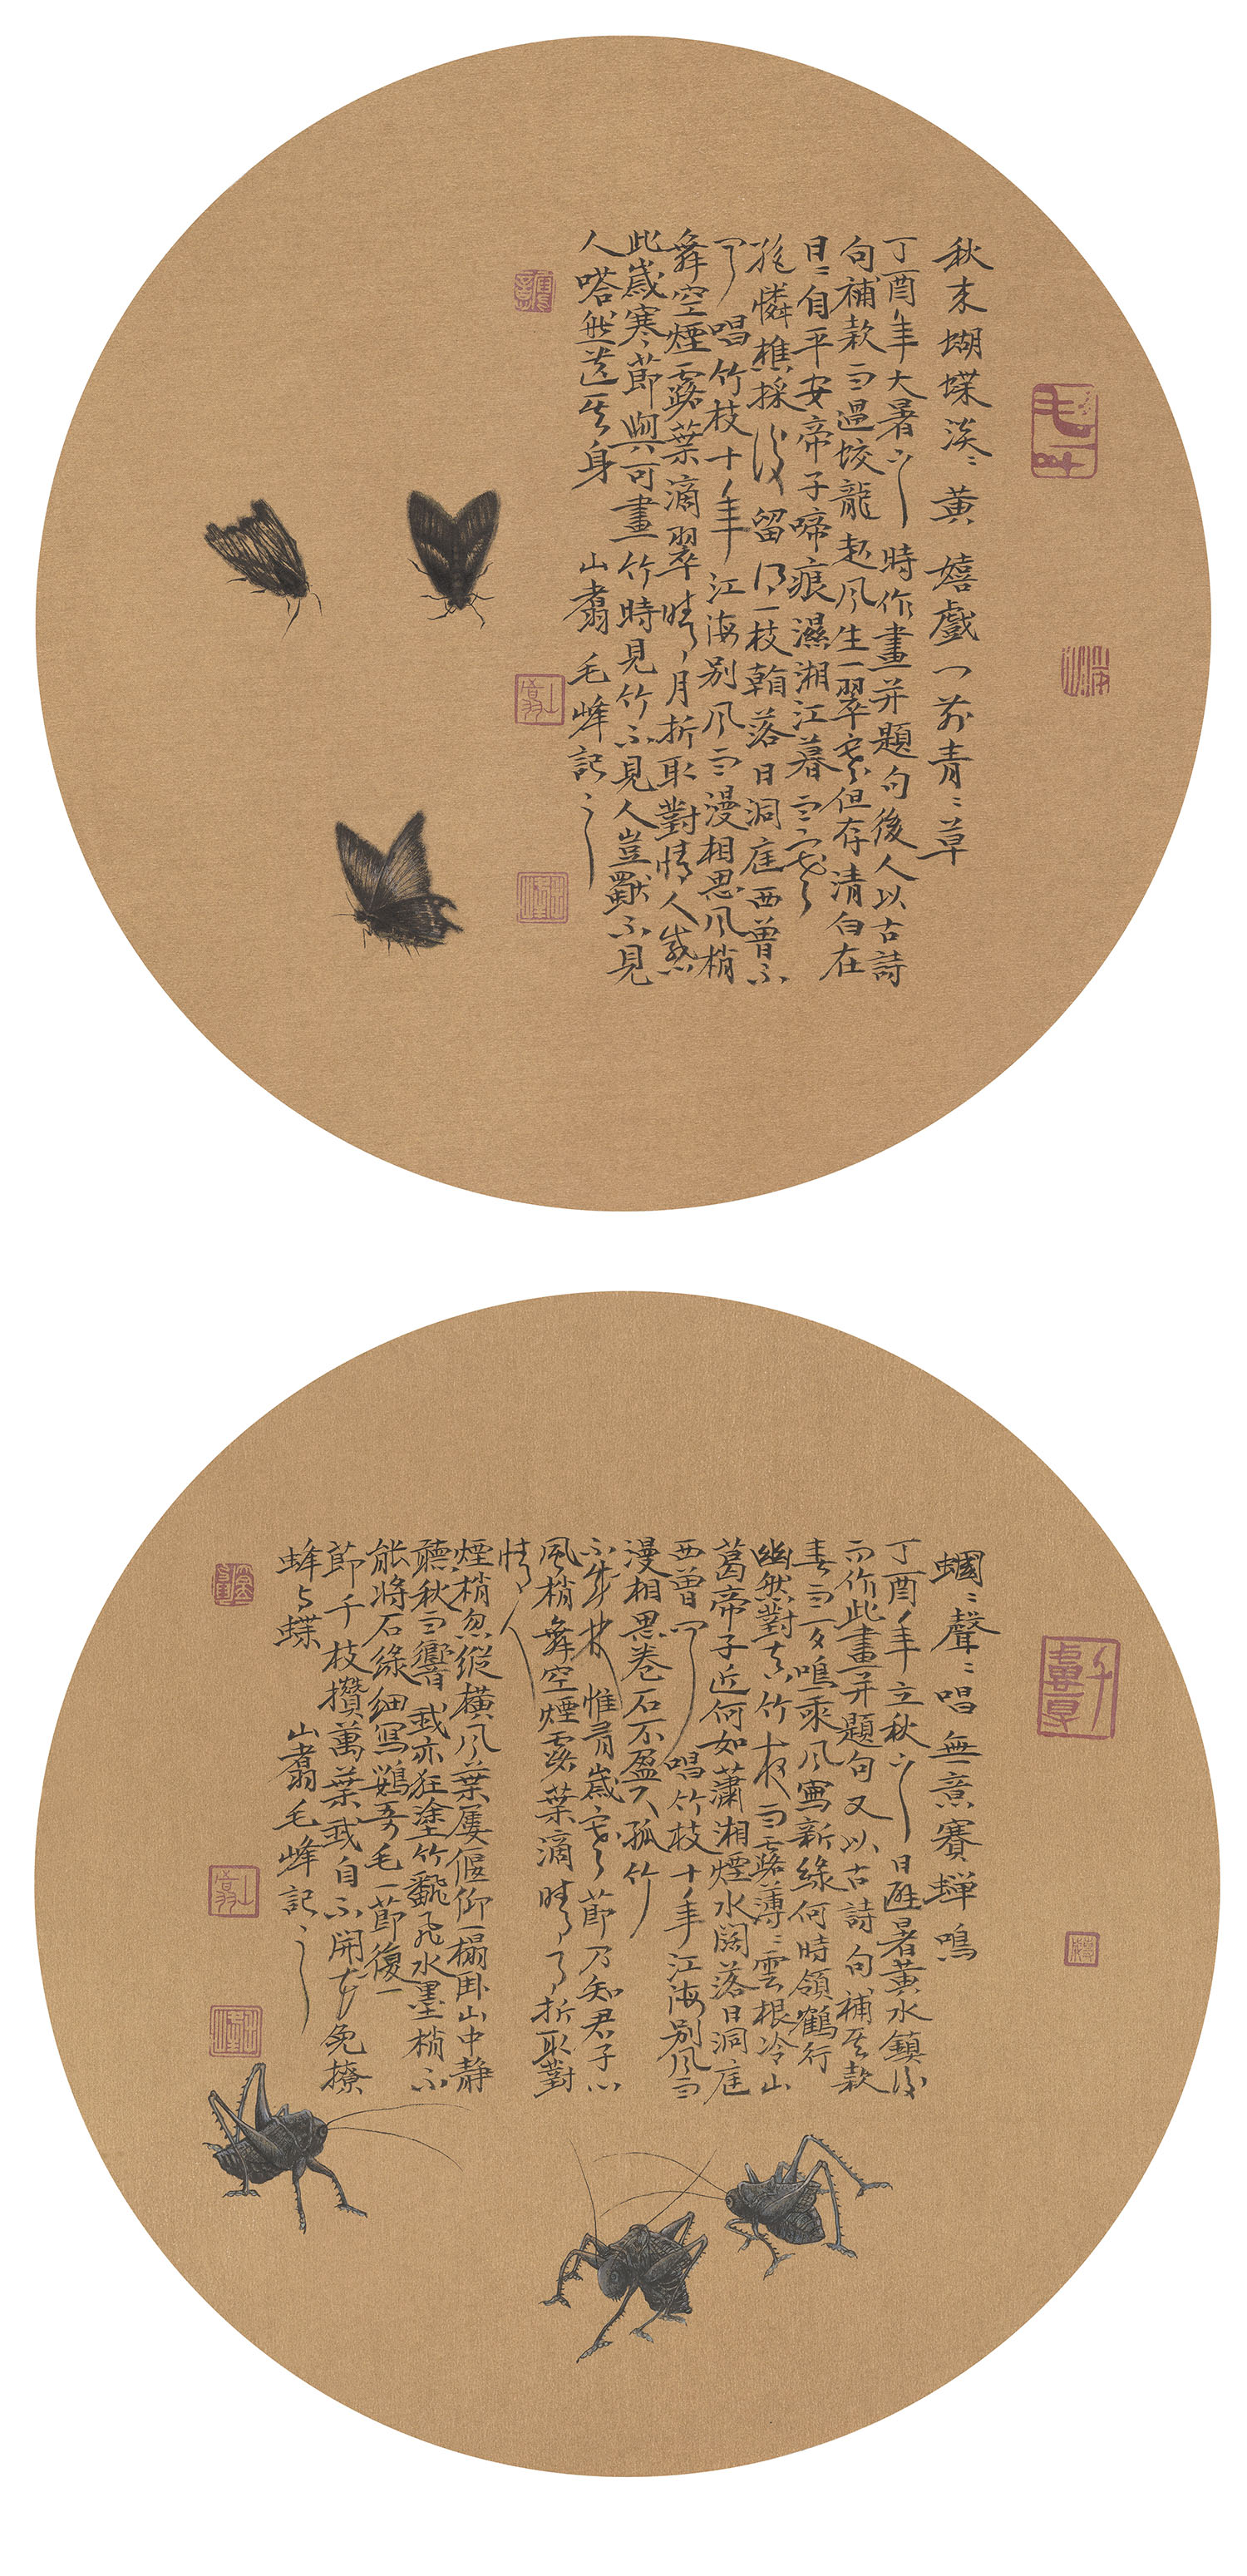 秋末蝴蝶淡淡黃 嬉戲一前青青草
丁酉年大暑 時作畫并題句後人以古詩
句補款 雨過蛟龍起風生翠 但存清白在
日日自平安帝子啼痕濕湘江暮雲
憐樵採後留得一枝翰落日洞庭西曾不
唱竹枝十年江海別風雨漫相思風梢
舞空煙露葉滴翠晴月折取對情人
此歲寒節與可畫竹時見竹不見人豈獸不見
人嗒然遺其身 山翥毛峰記之
蟈蟈聲聲唱 無意賽蟬鳴
丁酉年立秋 日避暑黃水鎮後
而作此畫并題句又以古詩句補其款
春雨一夕鳴乘風寫新綠何時領鶴行
幽然對 竹 雨露薄薄雲根冷山
葛帝子近何如瀟湘煙水闊落日洞庭
西曾 唱竹枝十年江海別風雨
漫相思卷石不盈尺孤竹
不成林惟有歲寒節乃知君子心
風梢舞空煙露葉滴晴 折取對
情人
煙梢忽縱橫風葉屢偃仰一榻臥山中靜
聽秋雨響我亦狂塗竹翻飛水墨梢不
能將石綠細寫鸚哥毛一節復一
節千枝攢萬葉我自不開花免撩
蜂与蝶 山翥毛峰記之